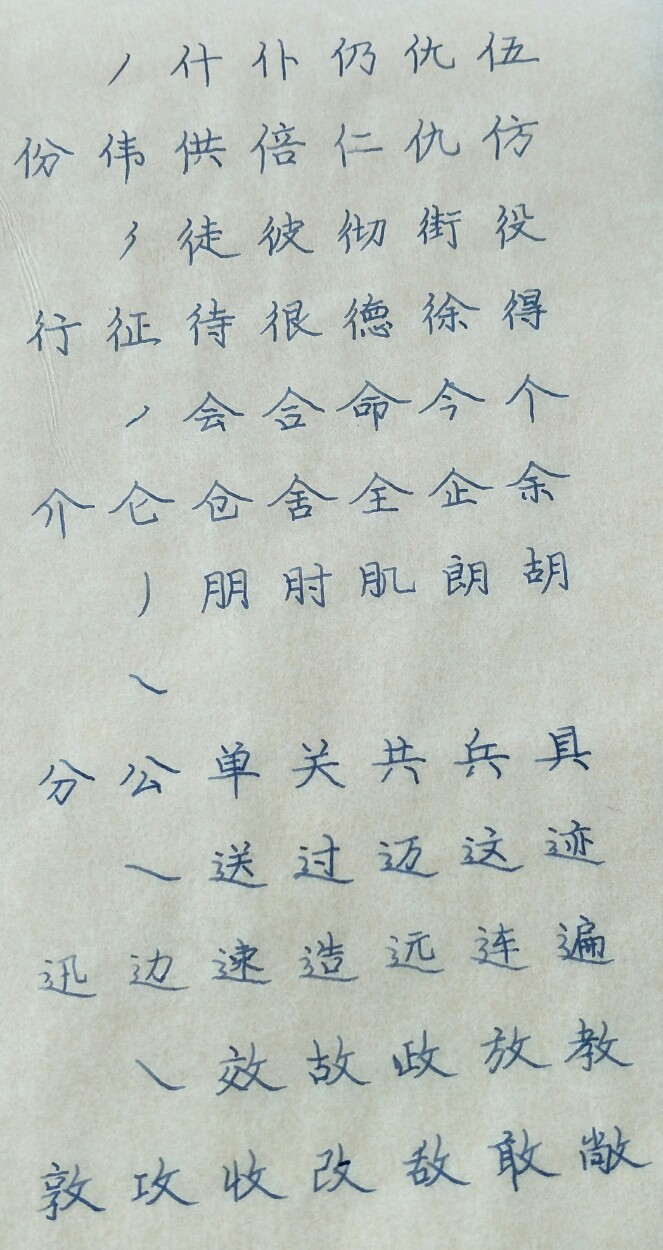 丿 什 仆 仍 仇 伍
份 伟 供 倍 仁 仇 仿
彳 徒 彼 彻 街 役
行 征 待 很 德 徐 得
丿 会 合 命 今 个
介 仑 仓 舍 全 企 余
丿 朋 肘 肌 朗 胡
㇏
分 公 单 关 共 兵 具
㇏ 送 过 迈 这 迹
迅 边 逮 造 远 连 遍
㇏ 效 故 政 放 教
敦 攻 收 改 敌 敢 敞